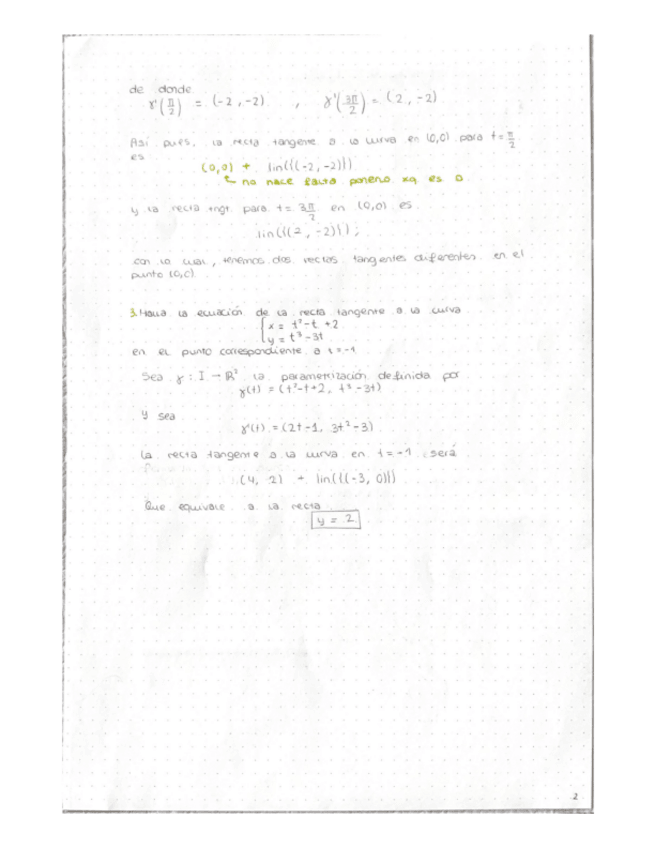 de donde
γ'(π/2) = (-2, -2) , γ'(3π/2) = (2, -2)
Así pues, la recta tangente a la curva en (0,0) para t = π/2
es
(0,0) + lin({(-2, -2)})
no hace falta ponerlo xq es 0
y la recta tngt. para t = 3π/2 en (0,0) es
lin({(2, -2)}) ;
con lo cual, tenemos dos rectas tangentes diferentes en el
punto (0,0).
3. Halla la ecuación de la recta tangente a la curva
{ x = t² - t + 2
y = t³ - 3t
en el punto correspondiente a t = -1
Sea γ : I → ℝ² la parametrización definida por
γ(t) = (t² - t + 2, t³ - 3t)
y sea
γ'(t) = (2t - 1, 3t² - 3)
La recta tangente a la curva en t = -1 será
(4, 2) + lin({(-3, 0)})
Que equivale a la recta
y = 2
2